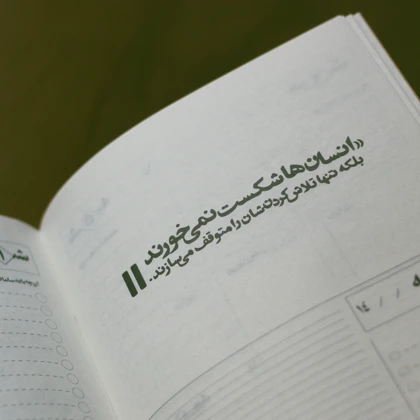 «انسان‌ها شکست نمی‌خورند
بلکه تنها تلاش کردن‌شان را متوقف می‌سازند.
۱۴ / /